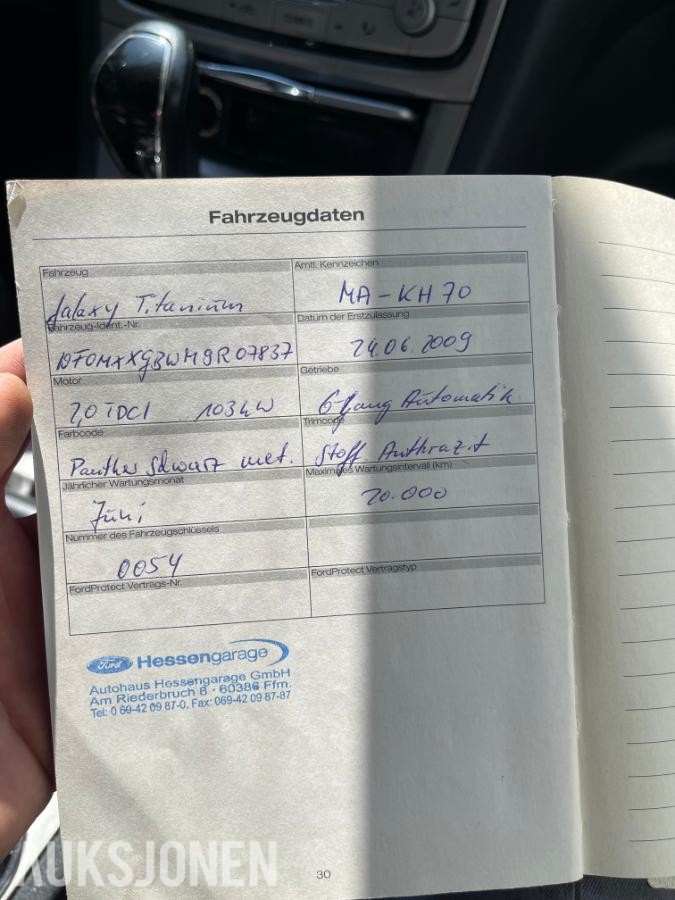 Fahrzeugdaten
Fahrzeug
Galaxy Titanium
Amtl. Kennzeichen
MA-KH 70
Fahrzeug-Ident.-Nr.
WF0MXXGBWM9R07837
Datum der Erstzulassung
24.06.2009
Motor
2,0 TDCI 103kW
Getriebe
6-Gang Automatik
Farbcode
Panther Schwarz met.
Trimcode
Stoff Anthrazit
Jährlicher Wartungsmonat
Juni
Maximales Wartungsintervall (km)
20.000
Nummer des Fahrzeugschlüssels
0054
FordProtect Vertrags-Nr.
FordProtect Vertragstyp
Ford Hessengarage
Autohaus Hessengarage GmbH
Am Riederbruch 8 · 60386 Ffm.
Tel: 0 69-42 09 87-0, Fax: 069-42 09 87-87
30
AUKSJONEN